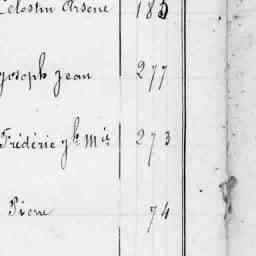 Celestin Arsene 185
Joseph Jean 277
Frédéric Jh Mie 273
Pierre 74